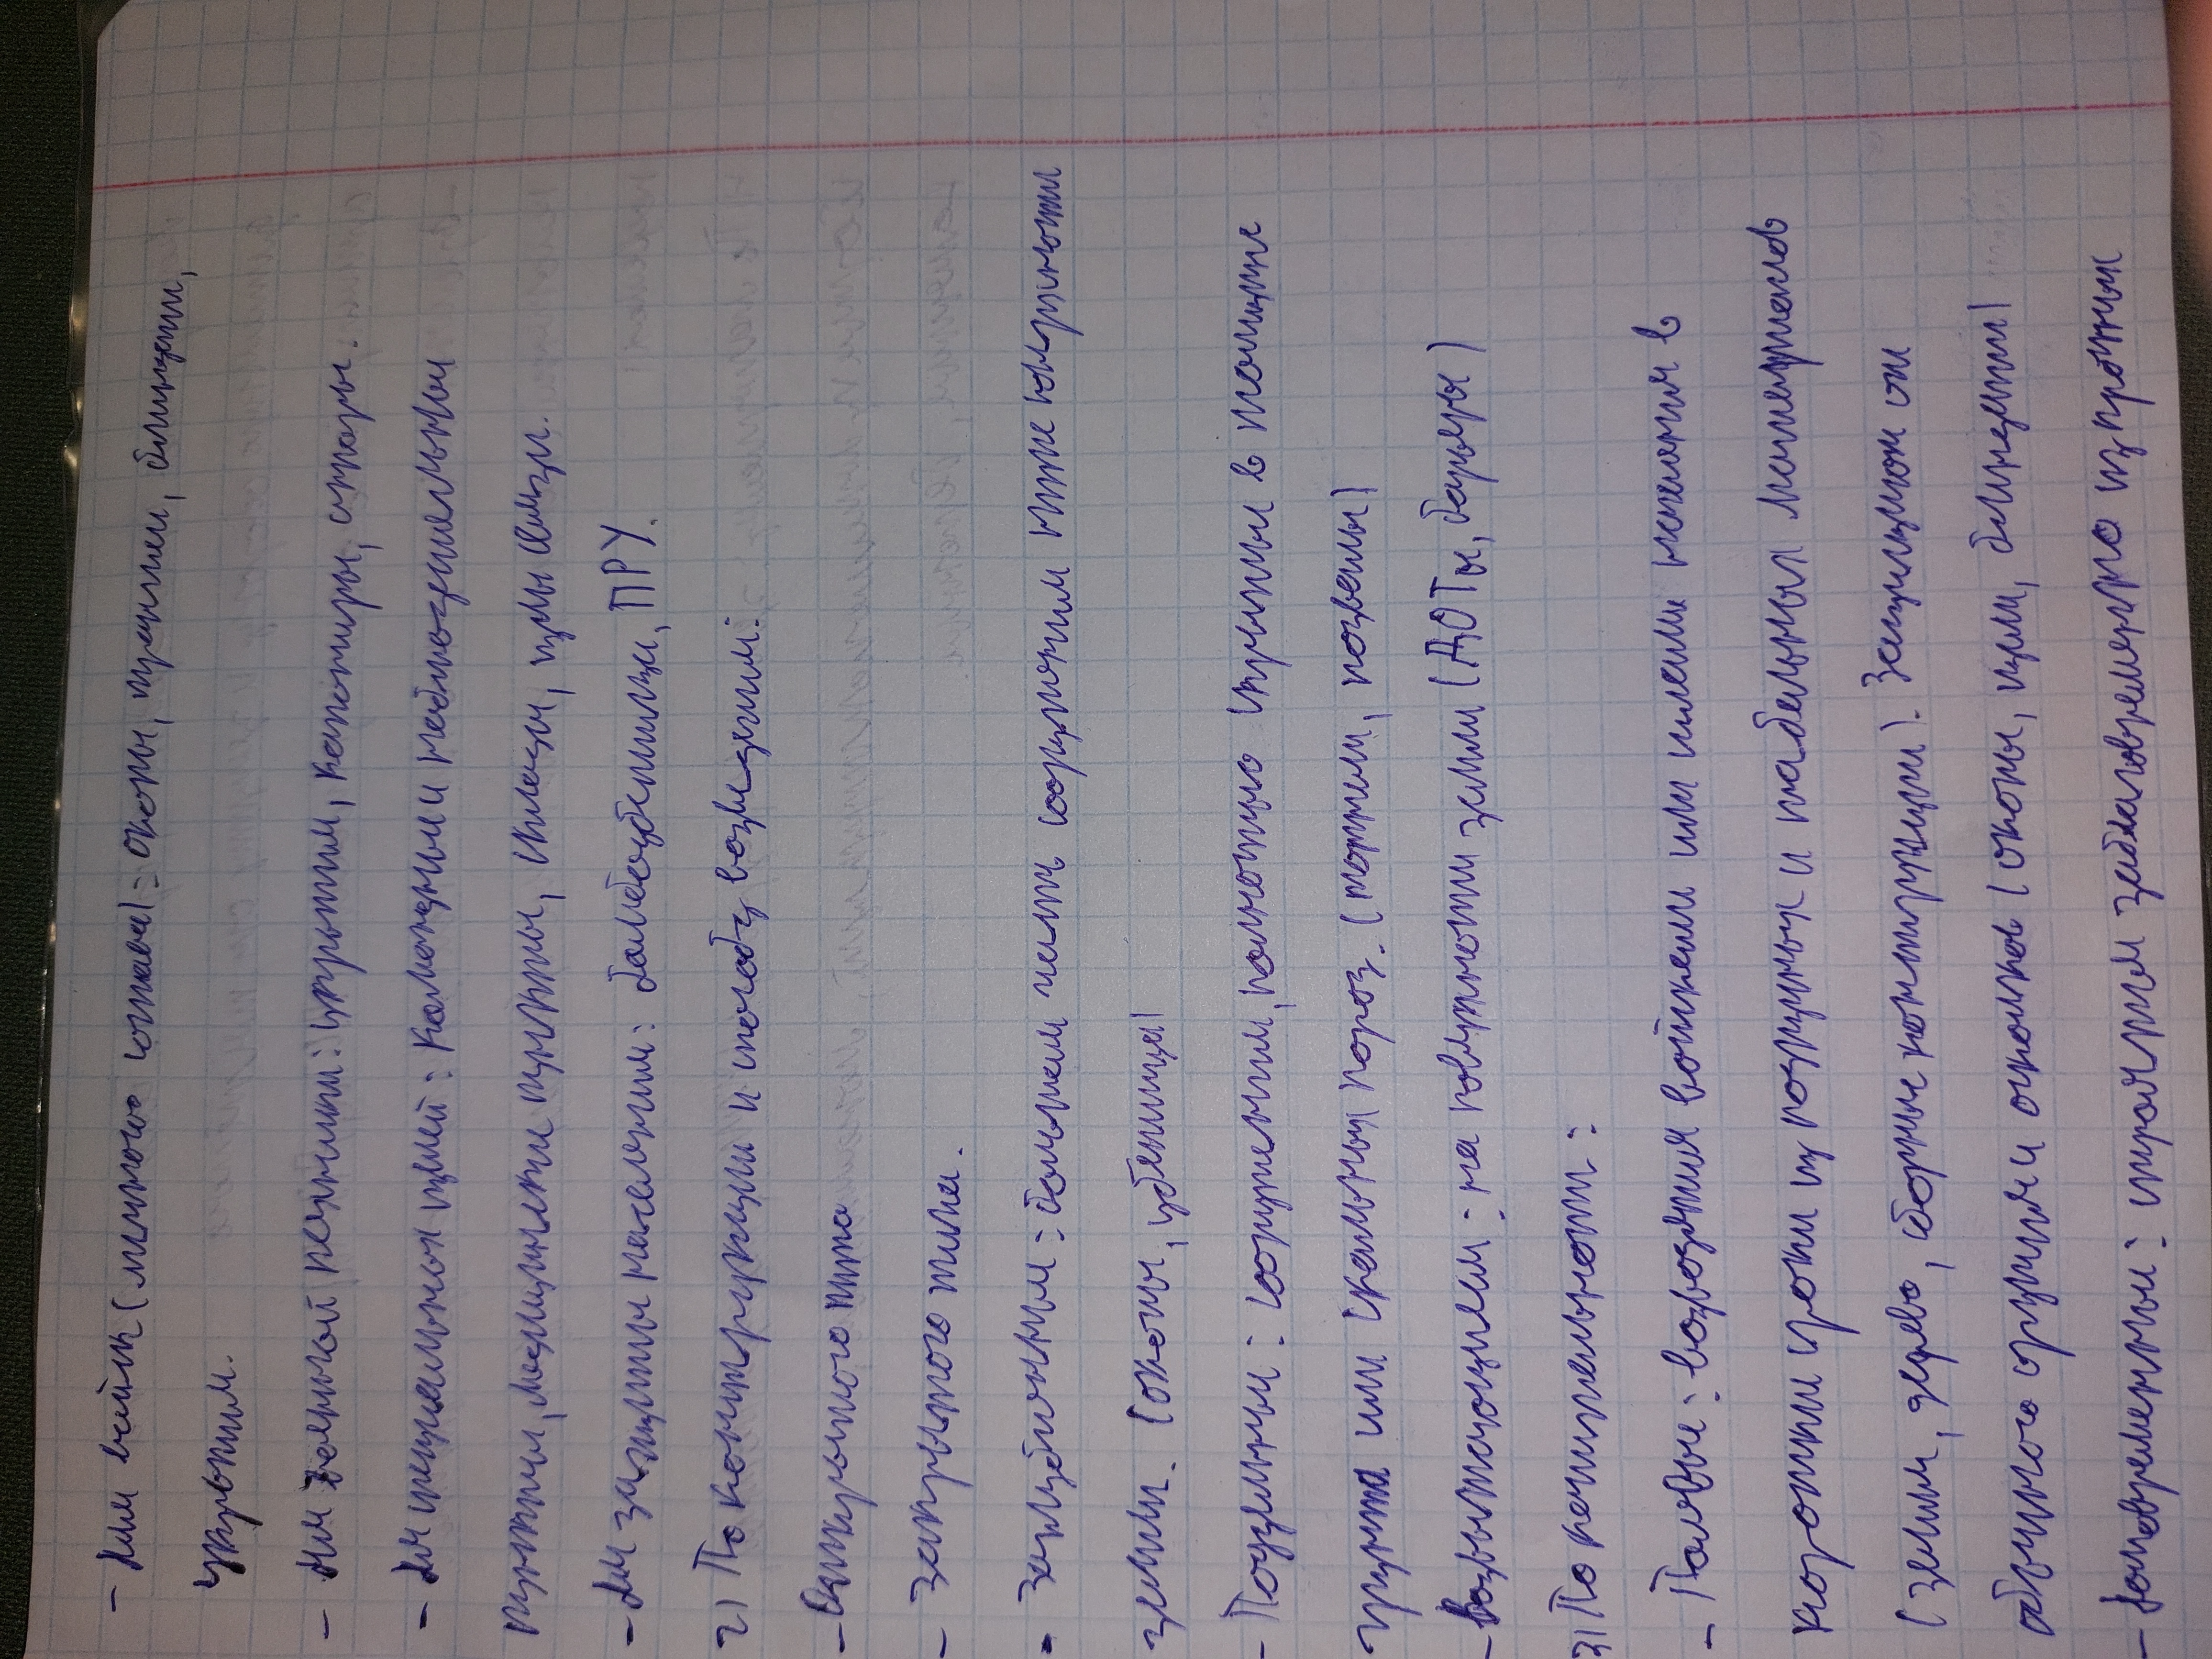 - Для войск (личного состава): окопы, траншеи, блиндажи,
укрытия.
- Для военной техники: укрытия, капониры, ангары.
- Для специальных целей: Командные и наблюдательные
пункты, медицинские пункты, склады, узлы связи.
- Для защиты населения: бомбоубежища, ПРУ.
2) По конструкции и способу возведения:
- Открытого типа
- Закрытого типа.
- Заглубленные: большая часть сооружения ниже поверхности
земли. (окопы, убежища)
- Подземные: сооружения, полностью скрытые в толще
грунта или скальных пород. (тоннели, подземы)
- Возвышающиеся: на поверхности земли (ДОТы, барьеры)
3) По капитальности:
- Полевые: возводятся войсками или населением в
короткие сроки из подручных и табельных материалов
(земля, дерево, сборные конструкции). Защищают от
обычного оружия и осколков (окопы, щели, блиндажи)
- Долговременные: строятся заблаговременно из прочных